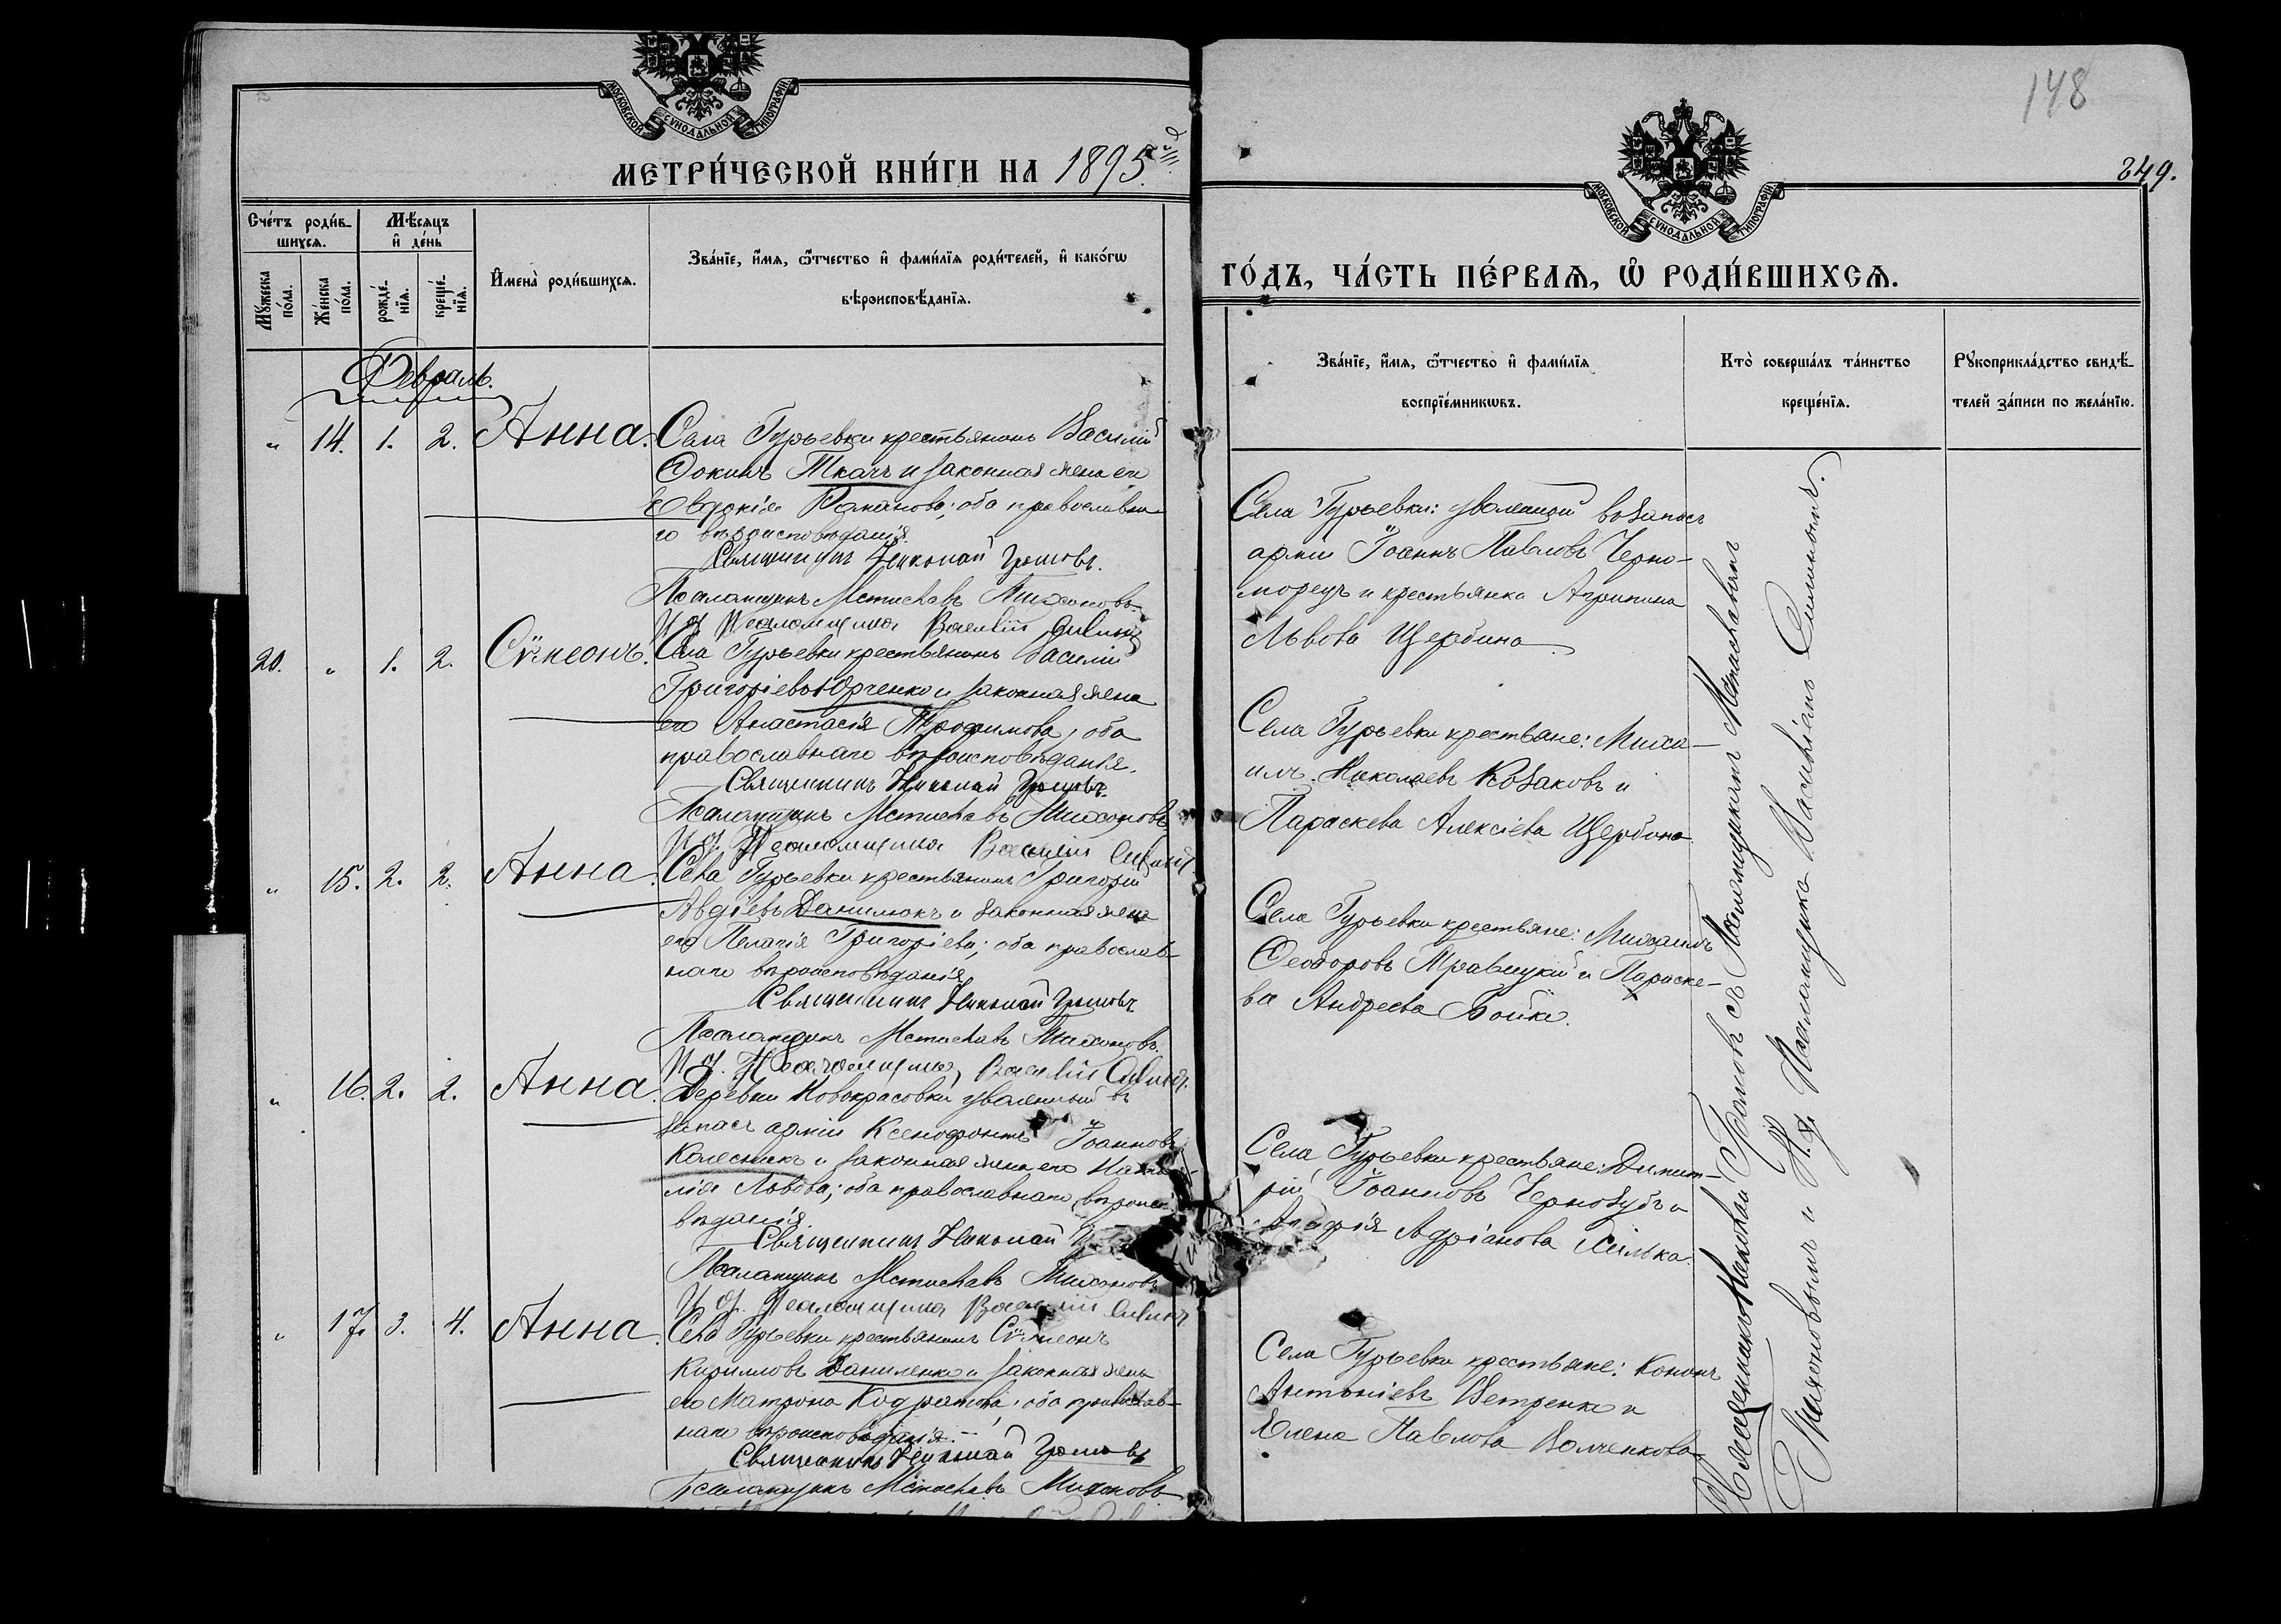 МОСКОВСКОЙ СѴНОДАЛЬНОЙ ТИПОГРАФІИ.
МЕТРИ́ЧЕСКОЙ КНИ́ГИ НА 1895
Сче́тъ роди́в-
шихся.
Мѣ́сяцъ
и҆ де́нь
Мꙋ́жеска
по́ла.
Же́нска
по́ла.
рожде́-
нїя.
креще́-
нїя.
И҆мена̀ роди́вшихся.
Зва́нїе, и҆́мя, ѻ҆́тчество и҆ фами́лїя роди́телей, и҆ како́гѡ
вѣроисповѣ́данїя.
Февраль.
" 14. 1. 2. Анна.
Села Гурьевки крестьянинъ Василій
Фокинъ Ткачъ и законная жена его
Евдокія Романова; оба православна-
го вѣроисповѣданія.
Священникъ Николай Громовъ.
Псаломщикъ Мстиславъ Тихоновъ.
И. д. Псаломщика Василій
20. " 1. 2. Сѵмеонъ.
Села Гурьевки крестьянинъ Василій
Григоріевъ Юрченко и законная жена
его Анастасія Трофимова, оба
православнаго вѣроисповѣданія.
Священникъ Николай Громовъ.
Псаломщикъ Мстиславъ Тихоновъ
И. д. Псаломщика Василій
" 15. 2. 2. Анна.
Села Гурьевки крестьянинъ Григорій
Авдіевъ Данилюкъ и законная жена
его Пелагія Григоріева; оба православ-
наго вѣроисповѣданія.
Священникъ Николай Громовъ
Псаломщикъ Мстиславъ Тихоновъ.
И. д. Псаломщика Василій
" 16. 2. 2. Анна.
Деревни Новокрасовки уволенный въ
запасъ арміи Ксенофонтъ Іоанновъ
Колесникъ и законная жена его Ната-
лія Львова; оба православнаго вѣроиспо-
вѣданія.
Священникъ Николай
Псаломщикъ Мстиславъ Тихоновъ
И. д. Псаломщика Василій
" 17. 3. 4. Анна.
Села Гурьевки крестьянинъ Сѵмеонъ
Кирилловъ Даниленко и законная жена
его Матрона Кодратова; оба православ-
наго вѣроисповѣданія.
Священникъ Николай Громовъ
Псаломщикъ Мстиславъ Тихоновъ
148
249.
МОСКОВСКОЙ СѴНОДАЛЬНОЙ ТИПОГРАФІИ.
ГО́ДЪ, ЧА́СТЬ ПЕ́РВАЯ, Ѡ҆ РОДИ́ВШИХСЯ.
Зва́нїе, и҆́мя, ѻ҆́тчество и҆ фами́лїя
воспрїе́мникѡвъ.
Кто̀ соверша́лъ та́инство
креще́нїя.
Рꙋкоприкла́дство свидѣ́-
телей за́писи по жела́нїю.
Села Гурьевки: уволенный въ запасъ
арміи Іоаннъ Павловъ Черно-
морецъ и крестьянка Агрипина
Львова Щербина
Села Гурьевки крестьяне: Миха-
илъ Николаевъ Козаковъ и
Параскева Алексіева Щербина
Села Гурьевки крестьяне: Михаилъ
Феодоровъ Травицкій и Параске-
ва Андреева Бойко.
Села Гурьевки крестьяне: Димит-
рій Іоанновъ Чернозубъ и
Адріанова
Села Гурьевки крестьяне: Кононъ
Антоніевъ Петренко и
Елена Павлова Волченкова
Священникъ Николай Громовъ съ Псаломщикомъ Мстиславомъ
Тихоновымъ и И. д. Псаломщика Василіемъ